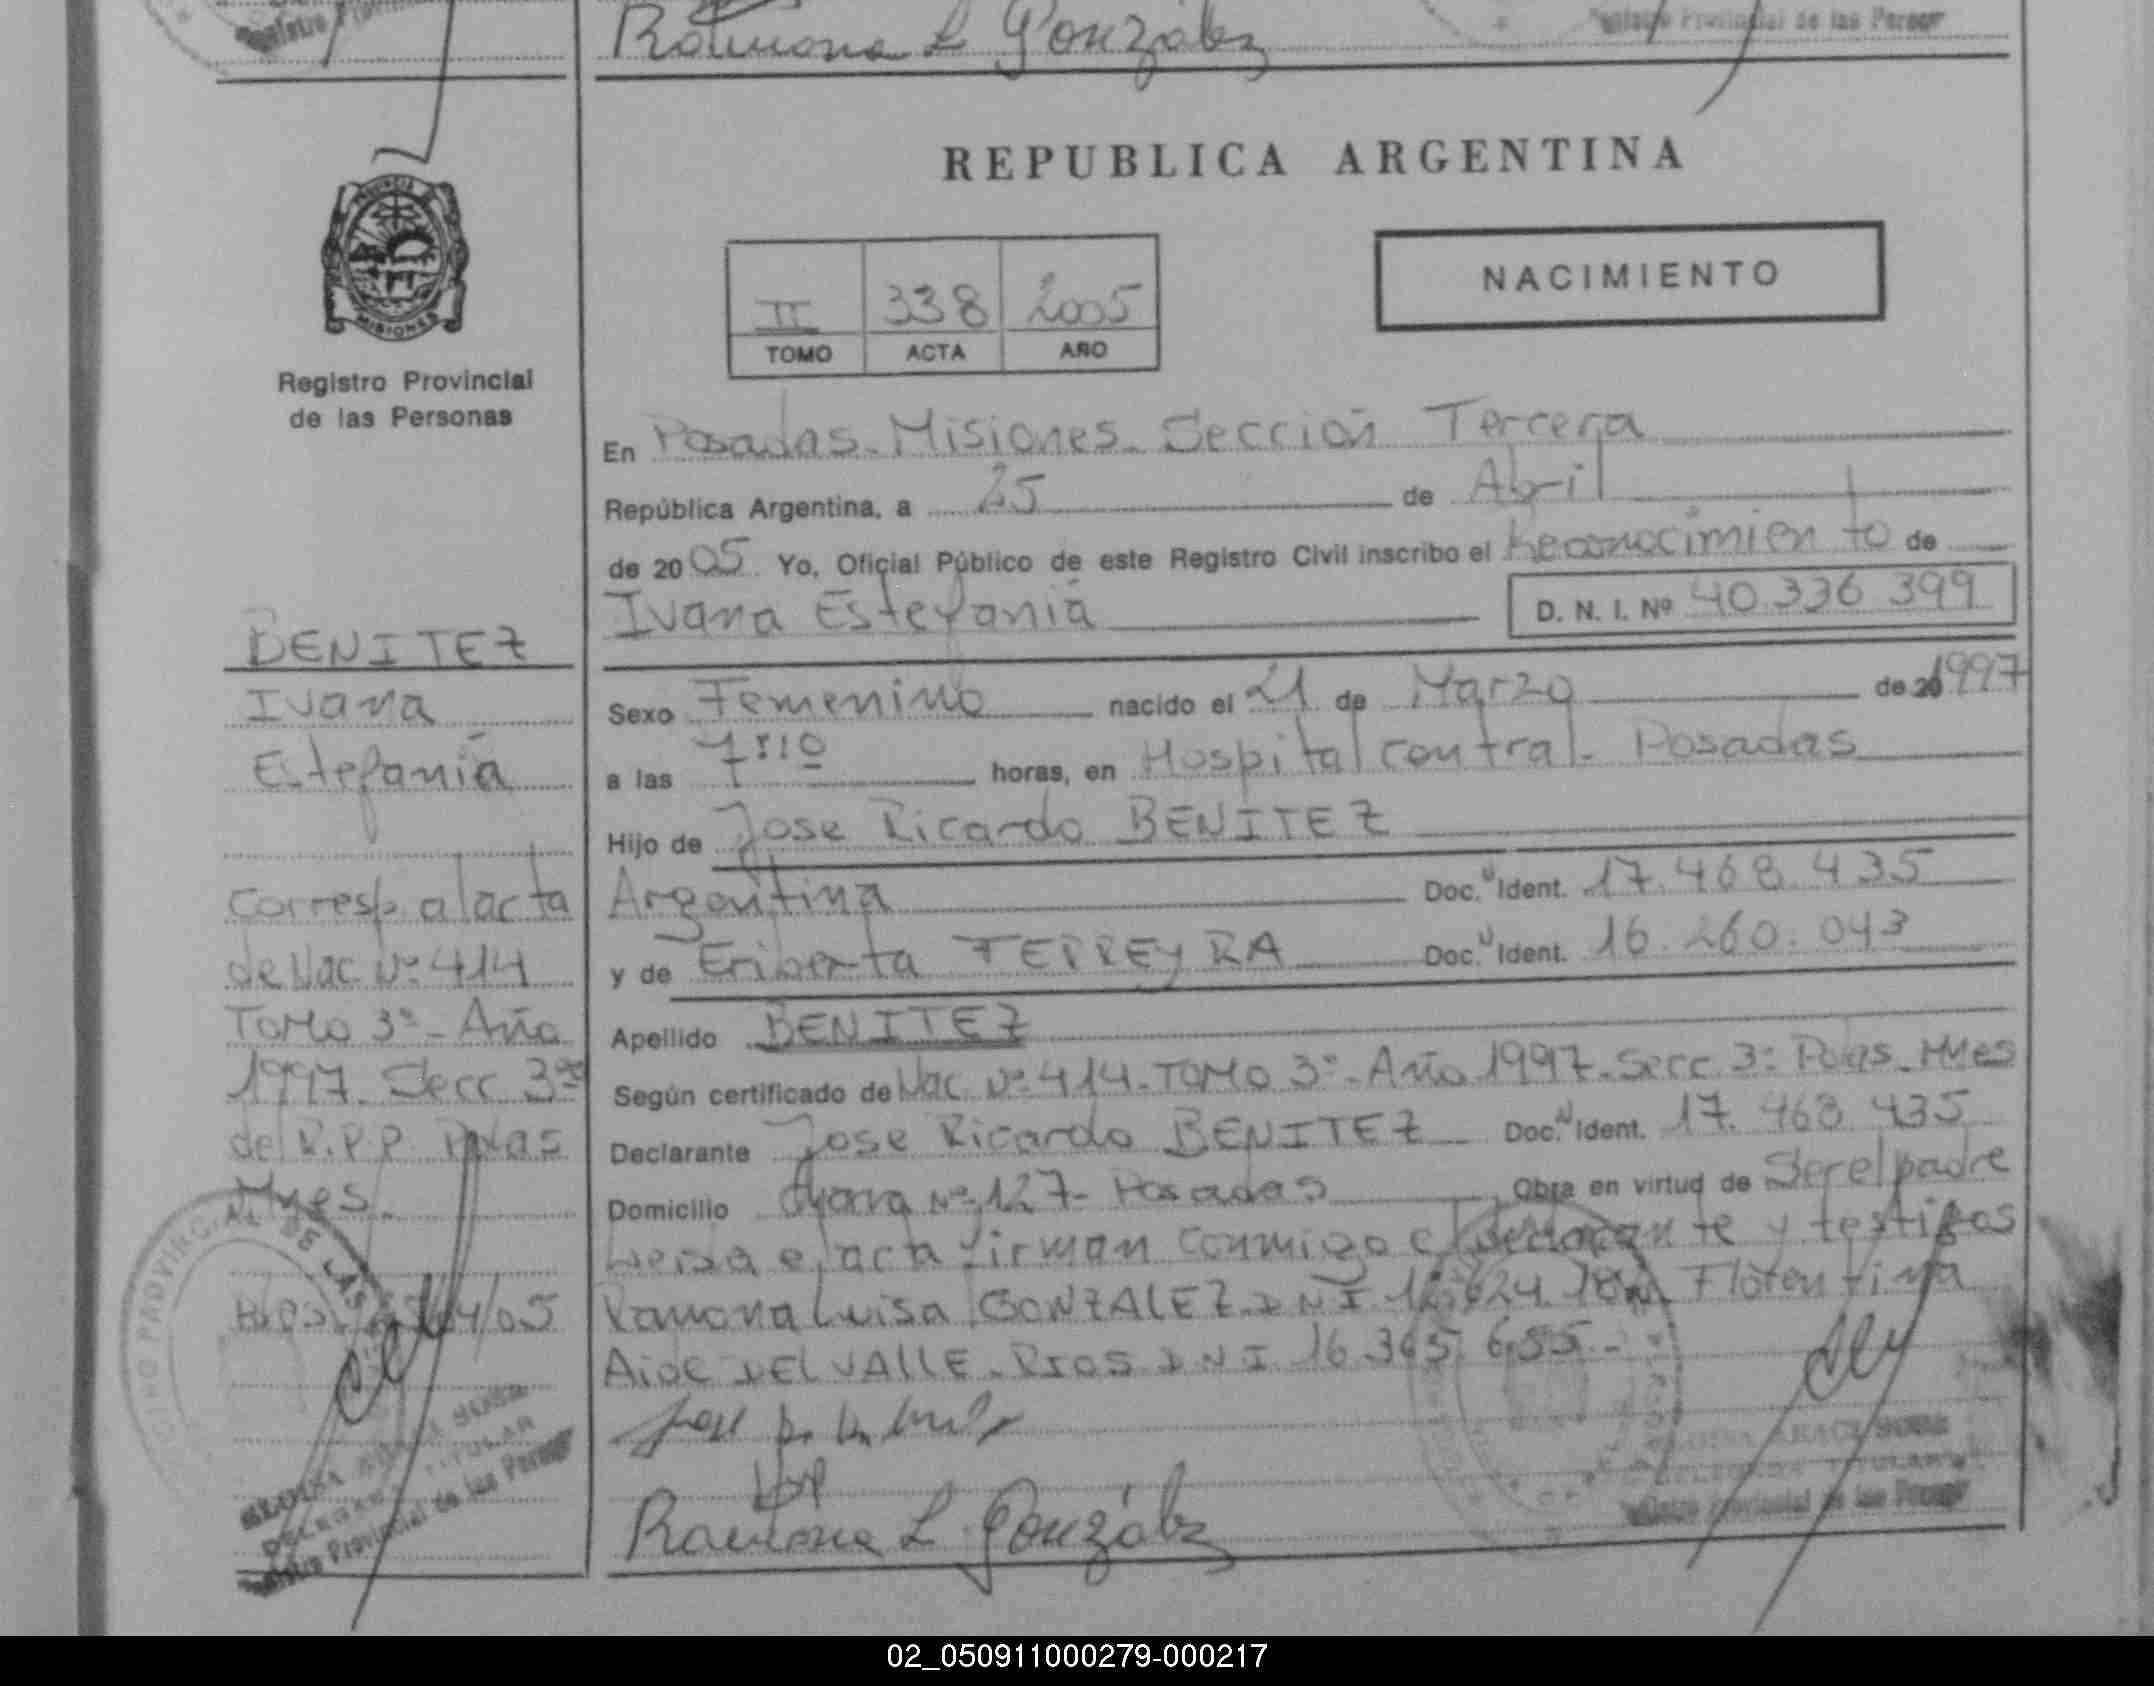 Ramona L González
Registro Provincial de las Person
REPUBLICA ARGENTINA
PROVINCIA
MISIONES
Registro Provincial
de las Personas
II 338 2005
TOMO ACTA AÑO
NACIMIENTO
En Posadas - Misiones - Sección Tercera
República Argentina, a 25 de Abril
de 2005 Yo, Oficial Público de este Registro Civil inscribo el Reconocimiento de
Ivana Estefania D. N. I. Nº 40.336.399
Sexo Femenino nacido el 21 de Marzo de 20 1997
a las 7:10 horas, en Hospital central - Posadas
Hijo de Jose Ricardo BENITEZ
Argentina Doc. N Ident. 17.468.435
y de Eriberta FERREYRA Doc. N Ident. 16.260.043
Apellido BENITEZ
Según certificado de Nac Nº 414 - TOMO 3º - Año 1997 - Secc 3º Pdas - Mnes
Declarante Jose Ricardo BENITEZ Doc. N Ident. 17.468.435
Domicilio Nº 127 - Posadas Obra en virtud de Ser el padre
Leida el acta firman conmigo el declarante y testigos
Ramona Luisa GONZALEZ DNI Florentina
Aide DEL VALLE - RIOS DNI 16.365.655 -
Ramona L. González
BENITEZ
Ivana
Estefania
Corresp. al acta
de Nac Nº 414
Tomo 3º - Año
1997 - Secc 3ra
del R.P.P. Pdas
Mnes.
04/05
PROVINCIAL DE LAS
TITULAR
Registro Provincial de las Person
TITULAR
Registro Provincial de las Person
02_050911000279-000217